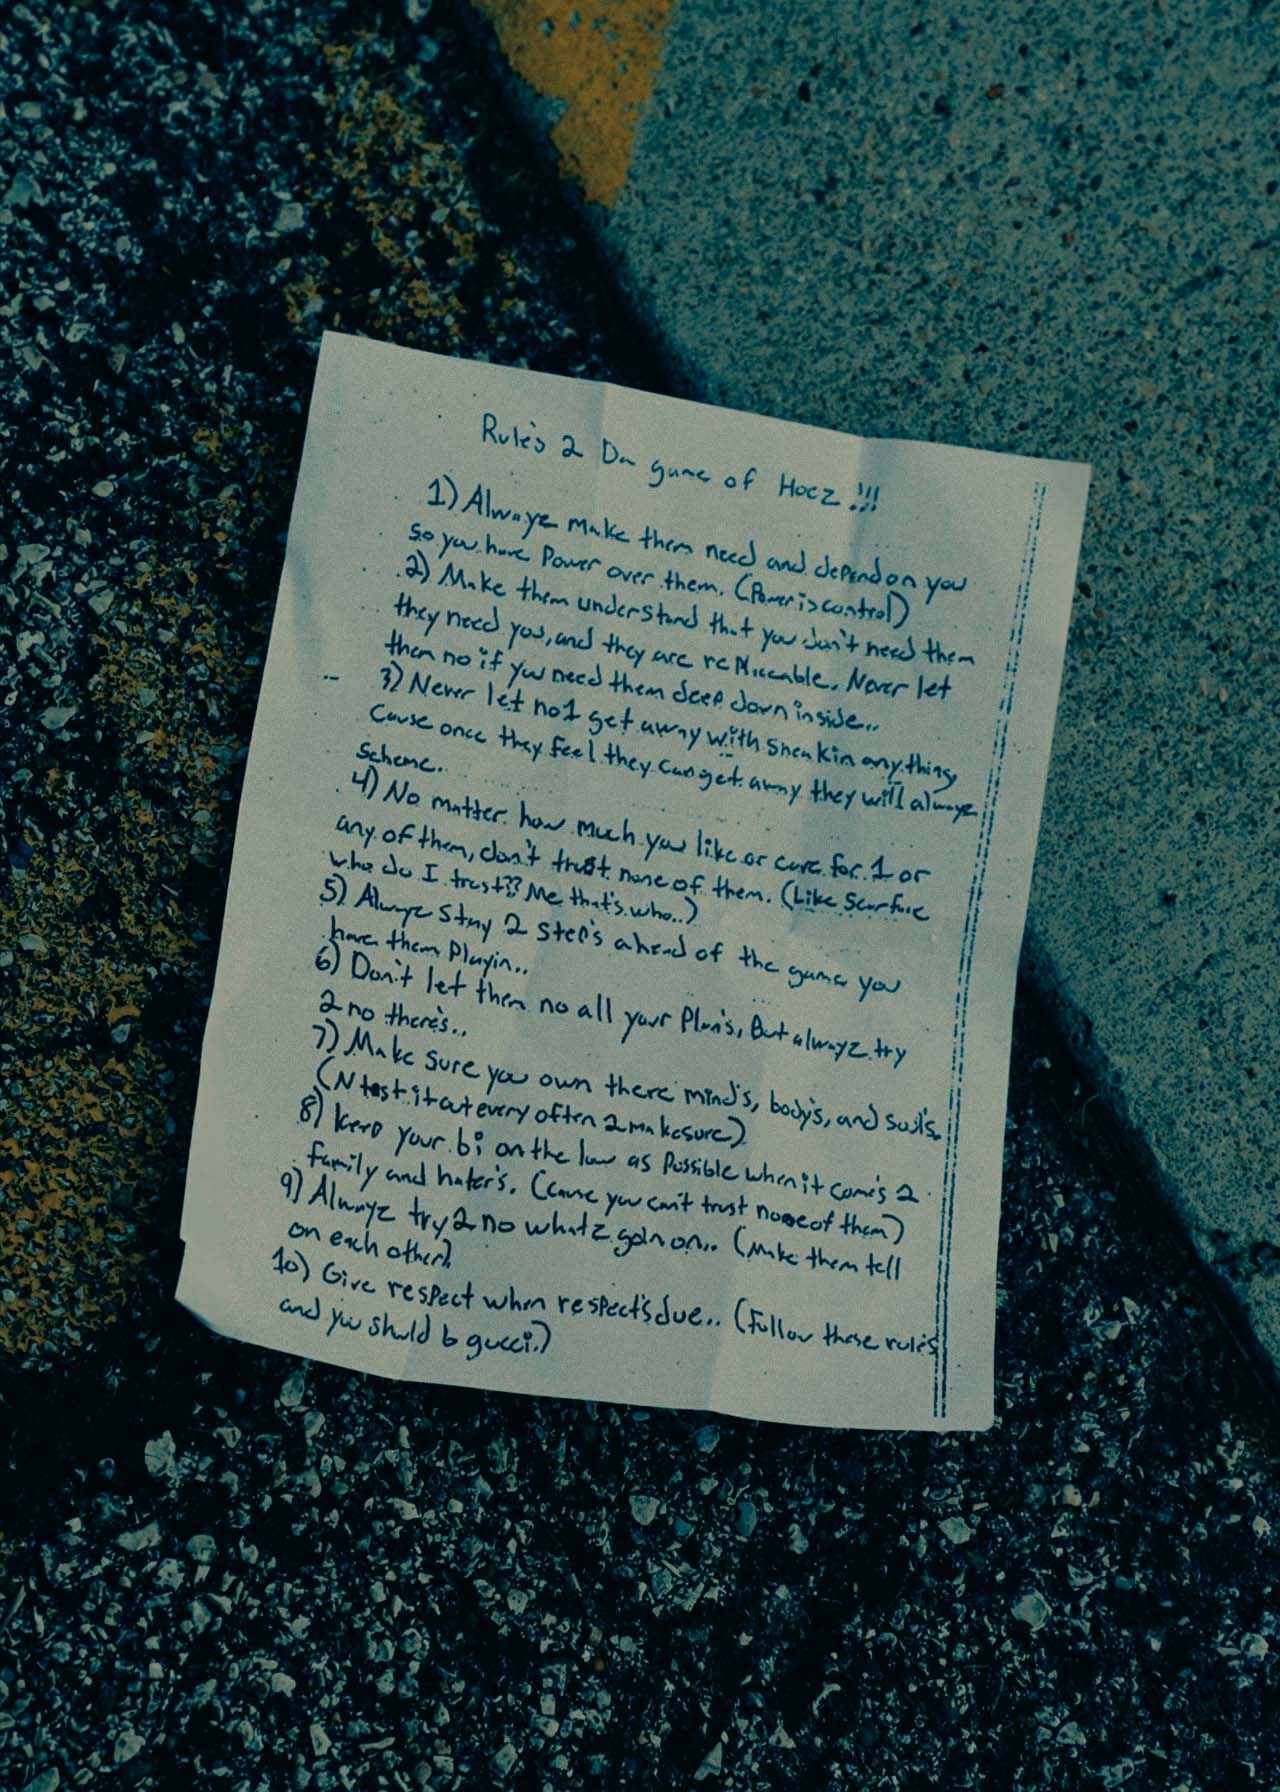 Rule's 2 Da game of Hoez!!!
1) Alwayz make them need and depend on you
so you have Power over them. (Power is control)
2) Make them understand that you don't need them
they need you, and they are replaceable. Never let
them no if you need them deep down inside..
3) Never let no1 get away with sneakin anything,
cause once they feel they can get away they will alwayz
scheme.
4) No matter how much you like or care for 1 or
any of them, don't trust none of them. (Like Scarface
who do I trust?? Me that's who..)
5) Alwayz stay 2 step's ahead of the game you
have them Playin..
6) Don't let them no all your Plan's, But alwayz try
2 no there's..
7) Make sure you own there mind's, body's, and soul's.
(N test it out every often 2 make sure)
8) Keep your bi on the low as Possible when it come's 2
family and hater's. (cause you can't trust none of them)
9) Alwayz try 2 no whatz goin on.. (Make them tell
on each other)
10) Give respect when respect's due.. (Follow these rule's
and you should b gucci.)